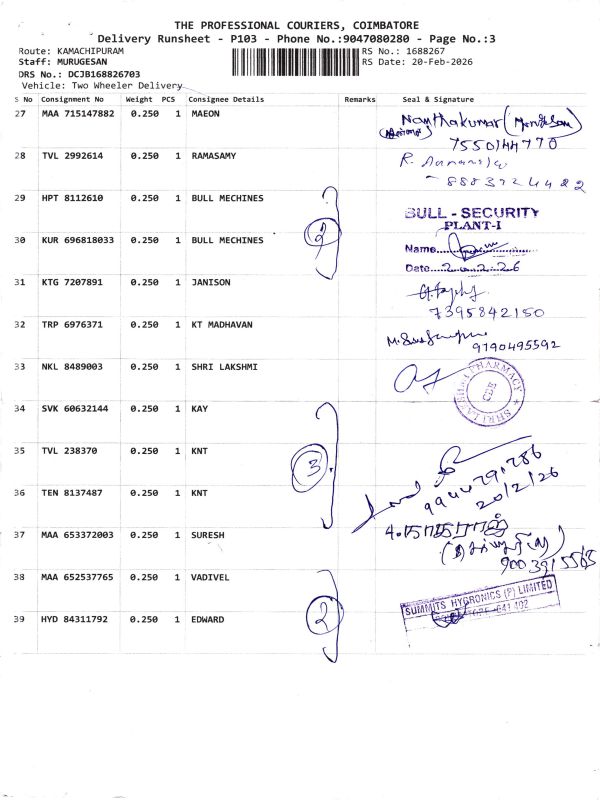 THE PROFESSIONAL COURIERS, COIMBATORE
Delivery Runsheet - P103 - Phone No.:9047080280 - Page No.:3
Route: KAMACHIPURAM
RS No.: 1688267
Staff: MURUGESAN
RS Date: 20-Feb-2026
DRS No.: DCJB168826703
Vehicle: Two Wheeler Delivery
S No Consignment No Weight PCS Consignee Details Remarks Seal & Signature
27 MAA 715147882 0.250 1 MAEON
Nanthakumar
7550144770
28 TVL 2992614 0.250 1 RAMASAMY
R.
29 HPT 8112610 0.250 1 BULL MECHINES
2
BULL - SECURITY
PLANT-I
30 KUR 696818033 0.250 1 BULL MECHINES
Name
Date
31 KTG 7207891 0.250 1 JANISON
7395842150
32 TRP 6976371 0.250 1 KT MADHAVAN
9790495592
33 NKL 8489003 0.250 1 SHRI LAKSHMI
SHRI LAKSHMI PHARMACY
34 SVK 60632144 0.250 1 KAY
35 TVL 238370 0.250 1 KNT
3
36 TEN 8137487 0.250 1 KNT
20/2/26
37 MAA 653372003 0.250 1 SURESH
38 MAA 652537765 0.250 1 VADIVEL
2
SUMMITS HYGRONICS (P) LIMITED
641 402
39 HYD 84311792 0.250 1 EDWARD